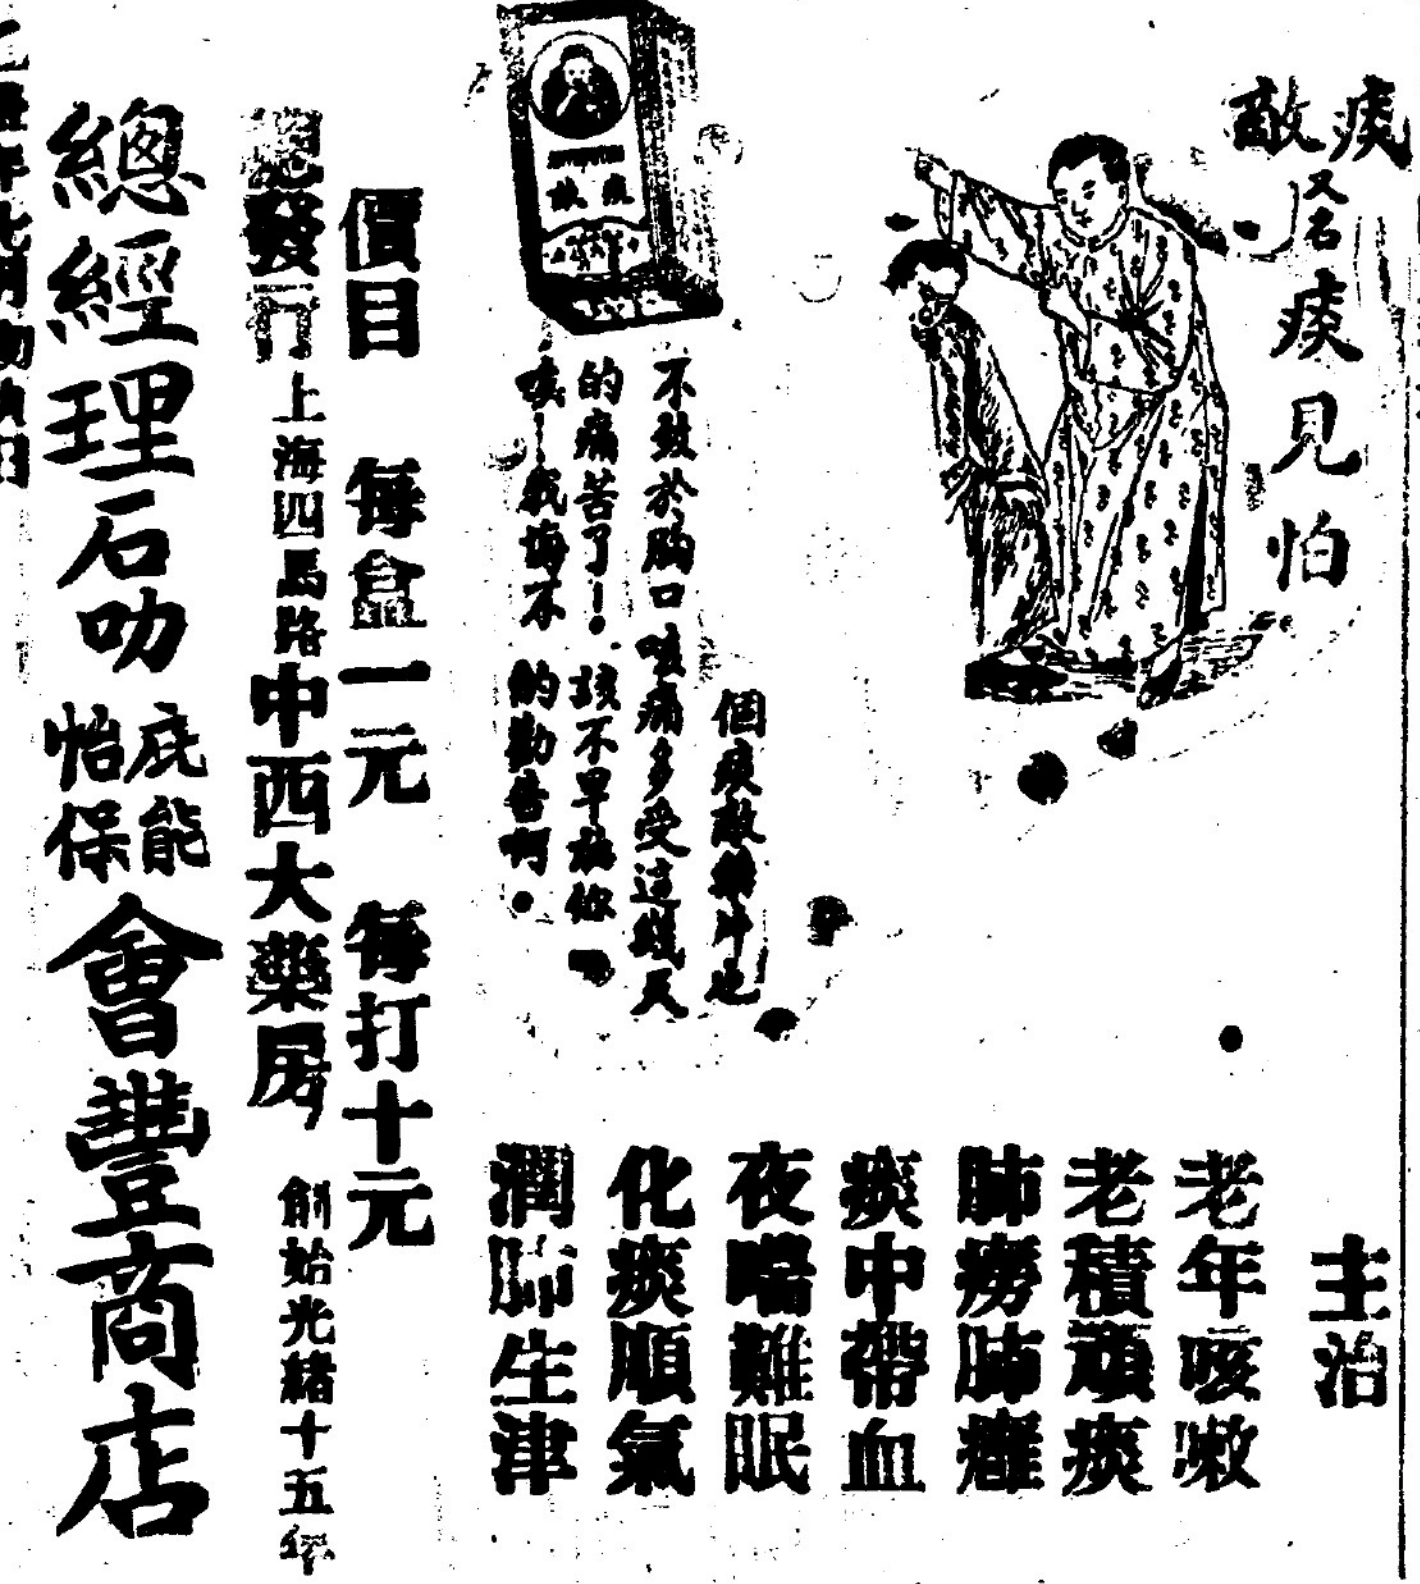 痰敵
又名
痰見怕
主治
老年咳嗽
老積頑痰
肺癆肺癰
痰中帶血
夜喘難眠
化痰順氣
潤肺生津
個痰敵藥片也
不致於胸口咳痛多受這幾天
的痛苦了！該不早服你
唉！我悔不
的勸告啊
痰敵
價目 每盒一元 每打十元
總發行 上海四馬路中西大藥房 創始光緒十五年
總經理石叻庇能怡保會豐商店